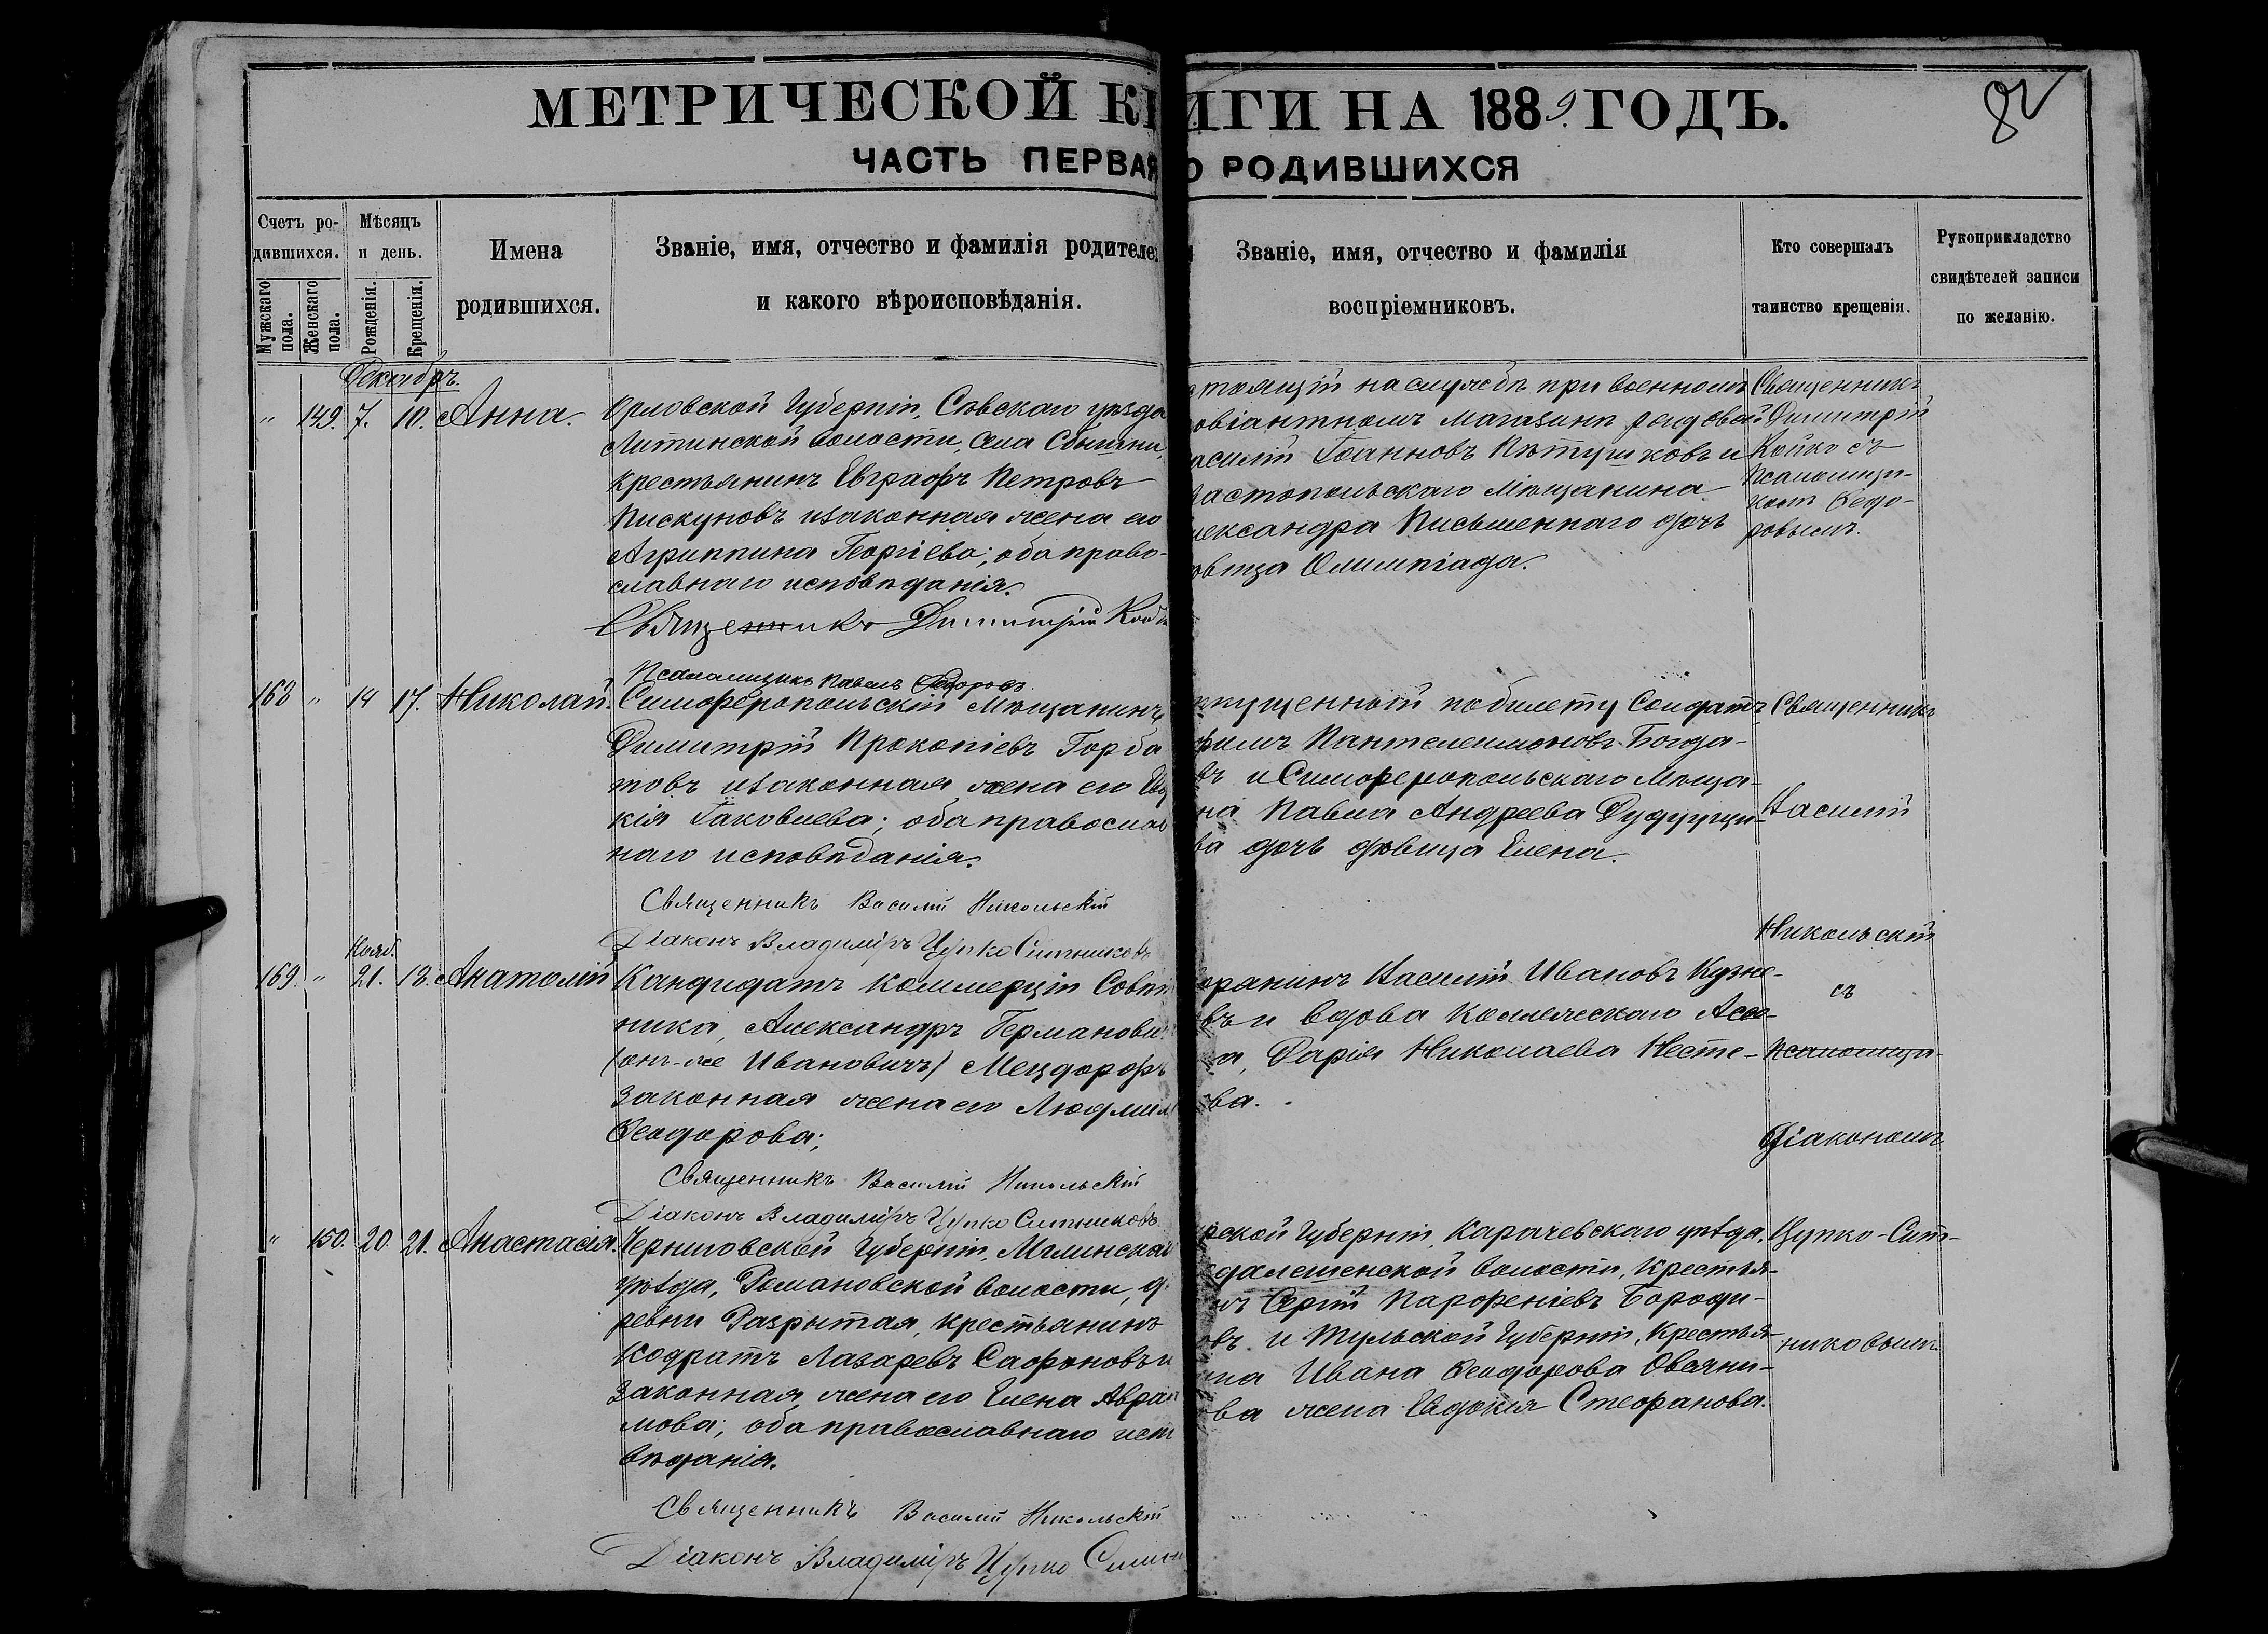 МЕТРИЧЕСКОЙ КНИГИ НА 1889. ГОДЪ.
82
ЧАСТЬ ПЕРВАЯ О РОДИВШИХСЯ
Счетъ ро-
дившихся.
Мужскаго пола.
Женскаго пола.
Мѣсяцъ
и день.
Рожденія.
Крещенія.
Имена
родившихся.
Званіе, имя, отчество и фамилія родителе
и какого вѣроисповѣданія.
Званіе, имя, отчество и фамилія
воспріемниковъ.
Кто совершалъ
таинство крещенія.
Рукоприкладство
свидѣтелей записи
по желанію.
Декабрь.
" 149. 7. 10. Анна.
Орловской Губерніи, Сѣвскаго уѣзда
Литинской волости, села
крестьянинъ Евграфъ Петровъ
Пискуновъ и законная жена его
Агриппина Георгіева; оба право-
славнаго исповѣданія.
Священникъ Димитрій Койко
Псаломщикъ Павелъ Федоровъ
стоящій на службѣ при военномъ
овіантномъ магазинѣ рядовой
асилій Іоанновъ Пѣтушковъ и
астопольскаго Мѣщанина
лександра Письменнаго дочь
овица Олимпіада.
Священникъ
Димитрій
Койко съ
Псаломщи-
комъ Федо-
ровымъ.
168 " 14 17. Николай.
Симферопольскій Мѣщанинъ
Димитрій Прокопіевъ Горба
товъ и законная жена его Евд
кія Іаковлева; оба православ
наго исповѣданія.
Священникъ Василій Никольскій
Діаконъ Владиміръ Цупко Ситниковъ
пущенный по билету Солдатъ
Пантелеимоновъ Богда-
въ и Симферопольскаго Мѣща-
на Павла Андреева
ва дочь дѣвица Елена.
Священникъ
Василій
Никольскій
съ
Псаломщи-
Діакономъ
Цупко-Сит-
никовымъ
Нояб.
169. " 21. 13. Анатолій
Кандидатъ Коммерціи Совѣт
ника, Александръ Германови
(онъ-же Ивановичъ) Мецдорфъ
законная жена его Людмил
Феодорова;
Священникъ Василій Никольскій
Діаконъ Владиміръ Цупко Ситниковъ
орянинъ Василій Ивановъ Кузне-
въ и вдова Коллежскаго Асес-
а, Дарія Николаева Несте-
ва.
" 150. 20. 21. Анастасія.
Черниговской Губерніи, Мглинскаг
уѣзда, Романовской волости, д
ревни Разрытая, крестьянинъ
Кодратъ Лазаревъ Сафоновъ и
законная жена его Елена Авра
мова; оба православнаго исп
вѣданія.
Священникъ Василій Никольскій
Діаконъ Владиміръ Цупко Ситни
рской Губерніи, Карачевскаго уѣзда,
волости, Крестья-
нъ Сергій Парфеніевъ Бороди-
овъ и Тульской Губерніи, Крестья-
на Ивана Феодорова Овсяни-
ова жена Евдокія Стефанова.